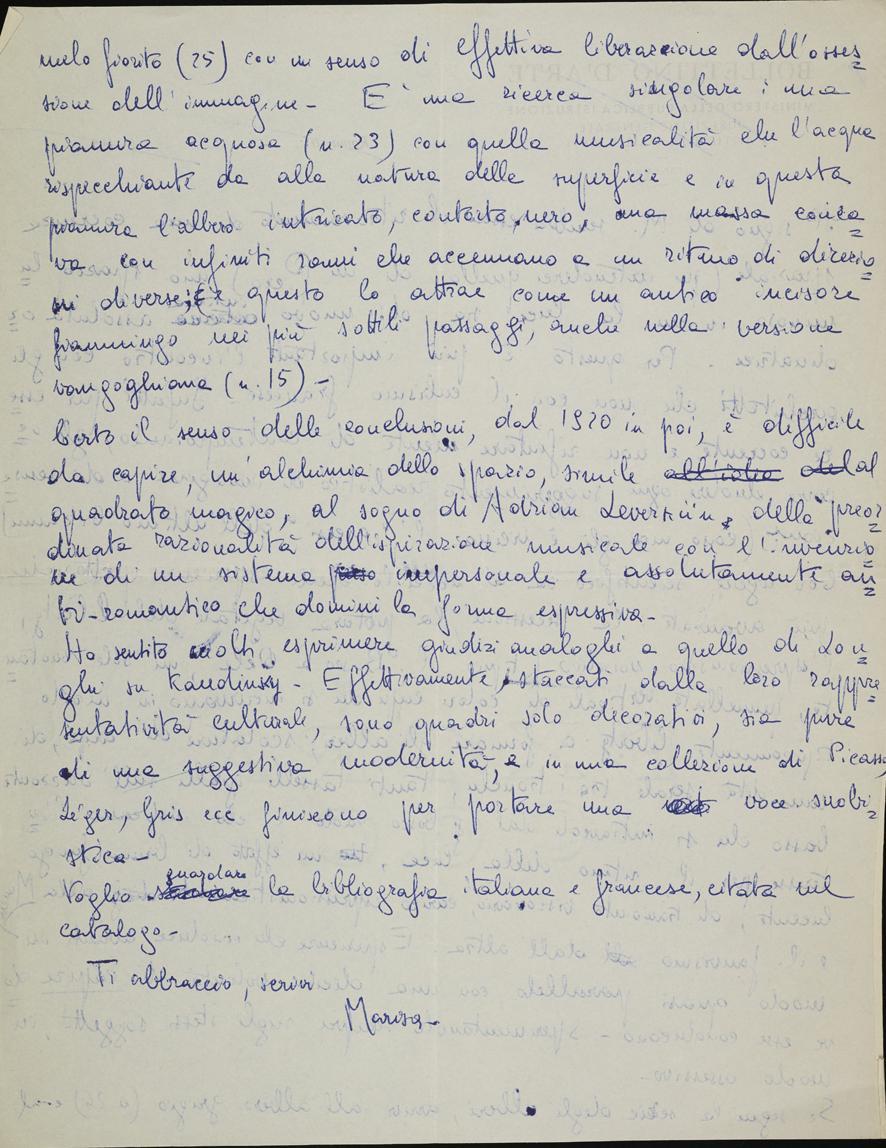 melo fiorito (25) con un senso di effettiva liberazione dall'osses=
sione dell'immagine - E' una ricerca singolare in una
pianura acquosa (n. 23) con quella musicalità che l'acqua
rispecchiante da alla natura della superficie e in questa
pianura l'albero intricato, contorto, nero, una massa conca=
va con infiniti rami che accennano a un ritmo di direzio=
ni diverse; E questo lo attrae come un antico incisore
fiammingo nei più sottili passaggi, anche nella versione
vangoghiana (n. 15) -
Certo il senso delle conclusioni, dal 1920 in poi, è difficile
da capire, un'alchimia dello spazio, simile al
quadrato magico, al sogno di Adrian Leverkün, della preor=
dinata razionalità dell'ispirazione musicale con l'invenzio=
ne di un sistema impersonale e assolutamente an=
ti-romantico che domini la forma espressiva -
Ho sentito molti esprimere giudizi analoghi a quello di Lon=
ghi su Kandinsky - Effettivamente, staccati dalla loro rappre=
sentatività culturale, sono quadri solo decorativi, sia pure
di una suggestiva modernità, e in una collezione di Picasso,
Léger, Gris ecc finiscono per portare una voce snobi=
stica -
Voglio guardare la bibliografia italiana e francese, citata nel
catalogo -
Ti abbraccio, scrivi
Marisa -